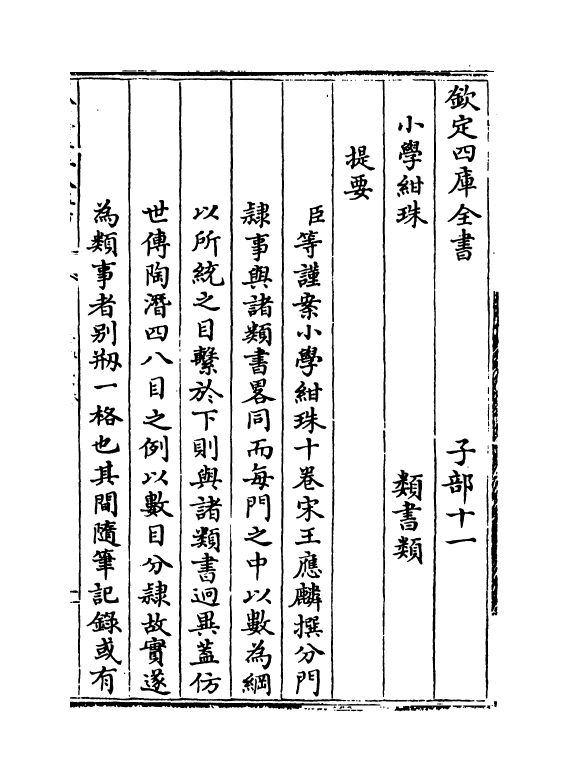 欽定四庫全書　子部十一
小學紺珠　類書類
提要
臣等謹案小學紺珠十卷宋王應麟撰分門
隷事與諸類書畧同而每門之中以數為綱
以所統之目繫於下則與諸類書迥異蓋仿
世傳陶潛四八目之例以數目分隷故實遂
為類事者别剏一格也其間隨筆記錄或有